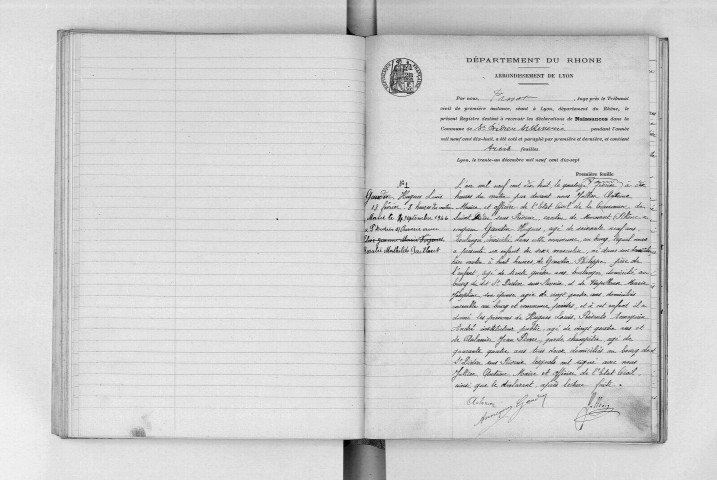 DÉPARTEMENT DU RHONE
ARRONDISSEMENT DE LYON
Par nous, Juge près le Tribunal
civil de première instance, séant à Lyon, département du Rhône, le
présent Registre destiné à recevoir les déclarations de Naissances dans la
Commune de St Didier s/s Riverie pendant l'année
mil neuf cent dix-huit, a été coté et paraphé par première et dernière, et contient
feuilles.
Lyon, le trente-un décembre mil neuf cent dix-sept
Première feuille
N° 1
Gaudin Hugues Louis
13 février, 8 heures du matin
Marié le septembre 1944
à St
avec
L'an mil neuf cent dix huit, le quatorze février à dix
heures du matin, par devant nous Jullien Antoine
Maire et officier de l'Etat Civil de la Commune de
Saint Didier sous Riverie, canton de Mornant (Rhône) a
comparu Gaudin Hugues, agé de soixante neuf ans
boulanger domicilié dans cette commune, au bourg, lequel nous
a présenté un enfant du sexe masculin, né dans
hier matin à huit heures, de Gaudin Philippe, père de
l'enfant, agé de trente quatre ans, boulanger, domicilié au
bourg de dit St Didier sous Riverie et de Marie
Joséphine, son épouse, agée de vingt quatre ans, domiciliés
ensemble au bourg et commune, et à cet enfant il a
donné les prénoms de Hugues Louis. Présents
André instituteur public, agé de vingt quatre ans et
de Jean Pierre, garde champêtre, agé de
quarante quatre ans tous deux domiciliés au bourg de
St Didier sous Riverie lesquels ont signé avec nous
Jullien Antoine, Maire et officier de l'Etat Civil,
ainsi que le déclarant, après lecture faite.
Gaudin
Jullien